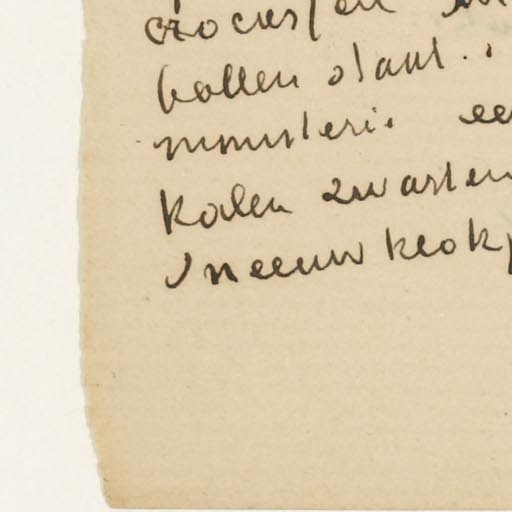 crocusfeu
bollen staat.
ministeri. ee
kalen zwarten
sneeuwklokj